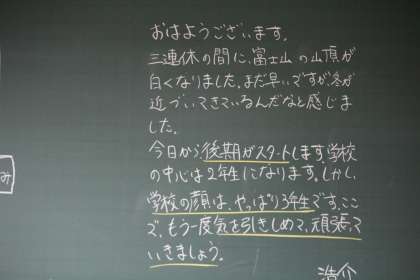 おはようございます。
三連休の間に、富士山の山頂が
白くなりました。まだ早いですが冬が
近づいてきているんだなと感じま
した。
今日から、後期がスタートします。学校
の中心は2年生になります。しかし、
学校の顔は、やっぱり3年生です。ここ
で、もう一度気を引きしめて、頑張って
いきましょう。
浩介
み